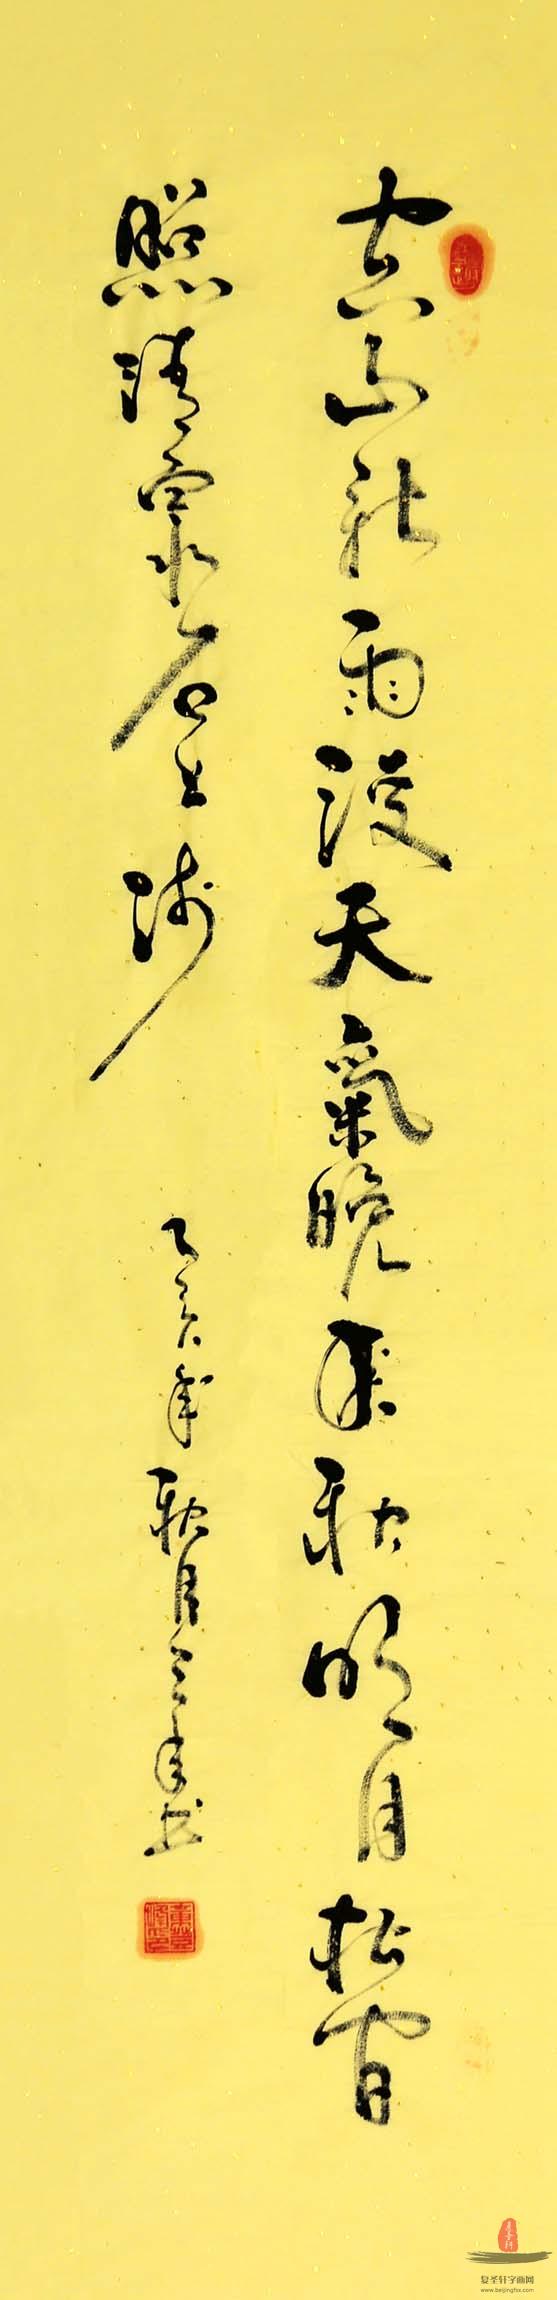 空山新雨後天氣晚来秋明月松间
照清泉石上流
乙亥年秋月
复圣轩字画网
www.beijingfsx.com